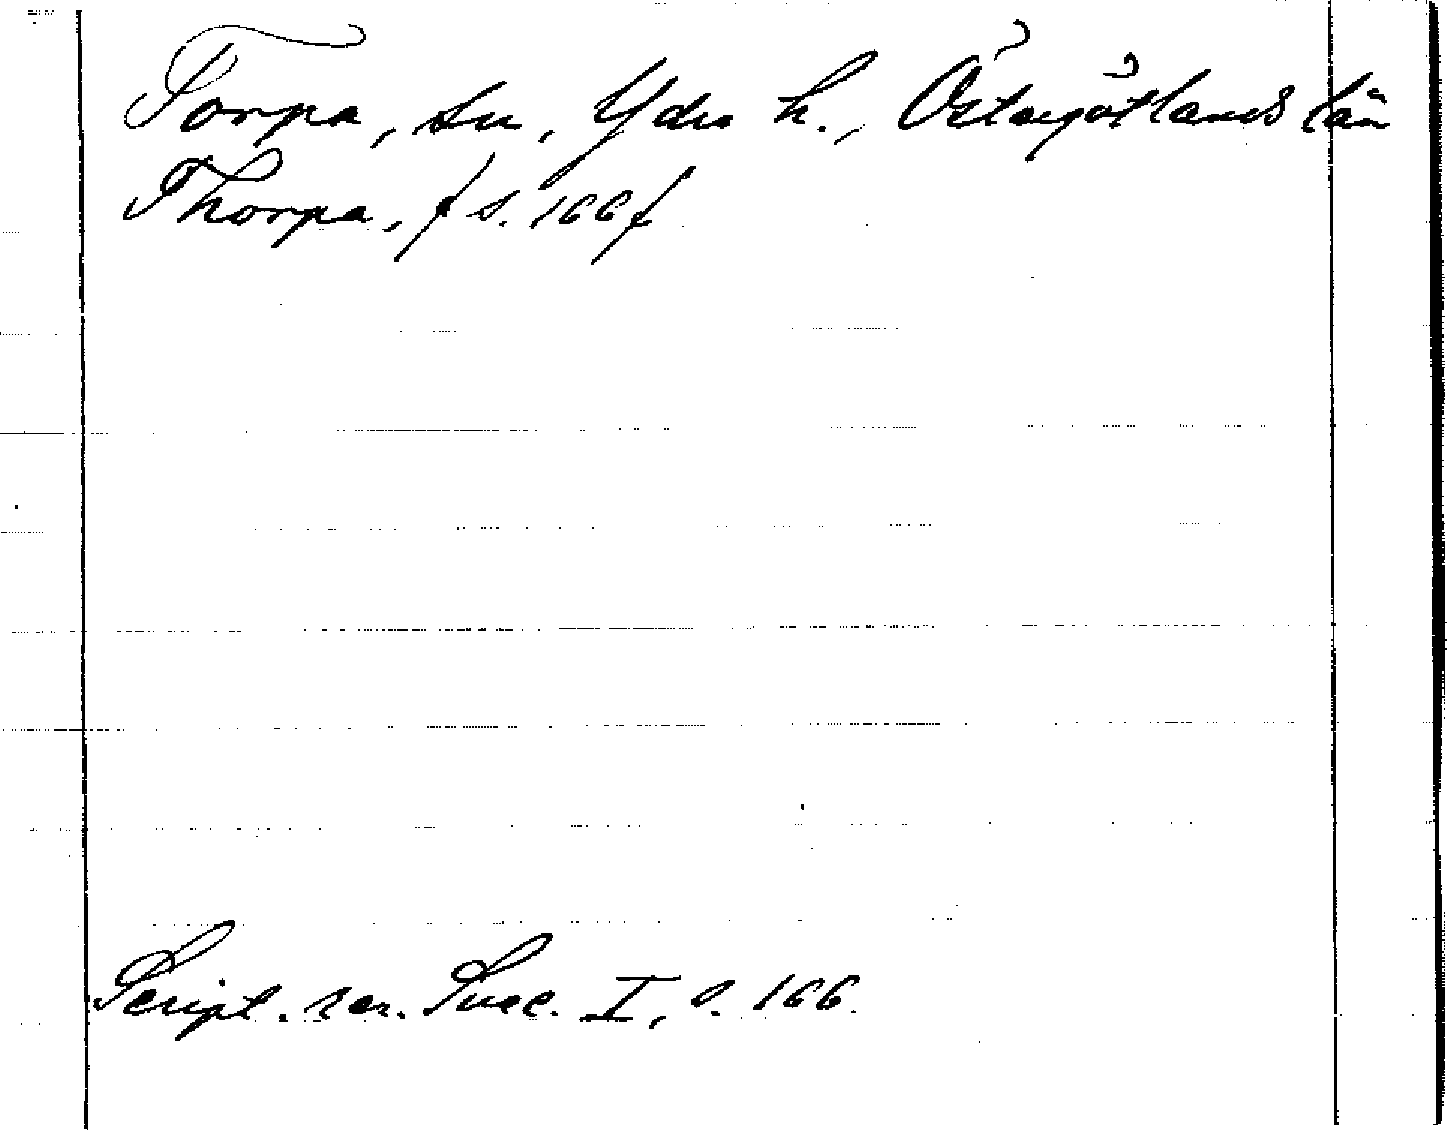 Torpa, sn, Ydre h., Östergötlands län
Thorpa, / s. 166 /
Script. rer. Suec. I, s. 166.